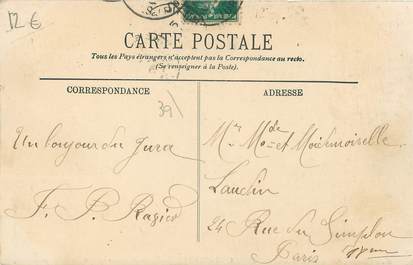 12 €
CARTE POSTALE
Tous les Pays étrangers n'acceptent pas la Correspondance au recto.
(Se renseigner à la Poste).
CORRESPONDANCE
ADRESSE
39
Un bonjour du Jura
F. P.
Mr Mde et Mademoiselle
Laudin
24 Rue du Simplon
Paris